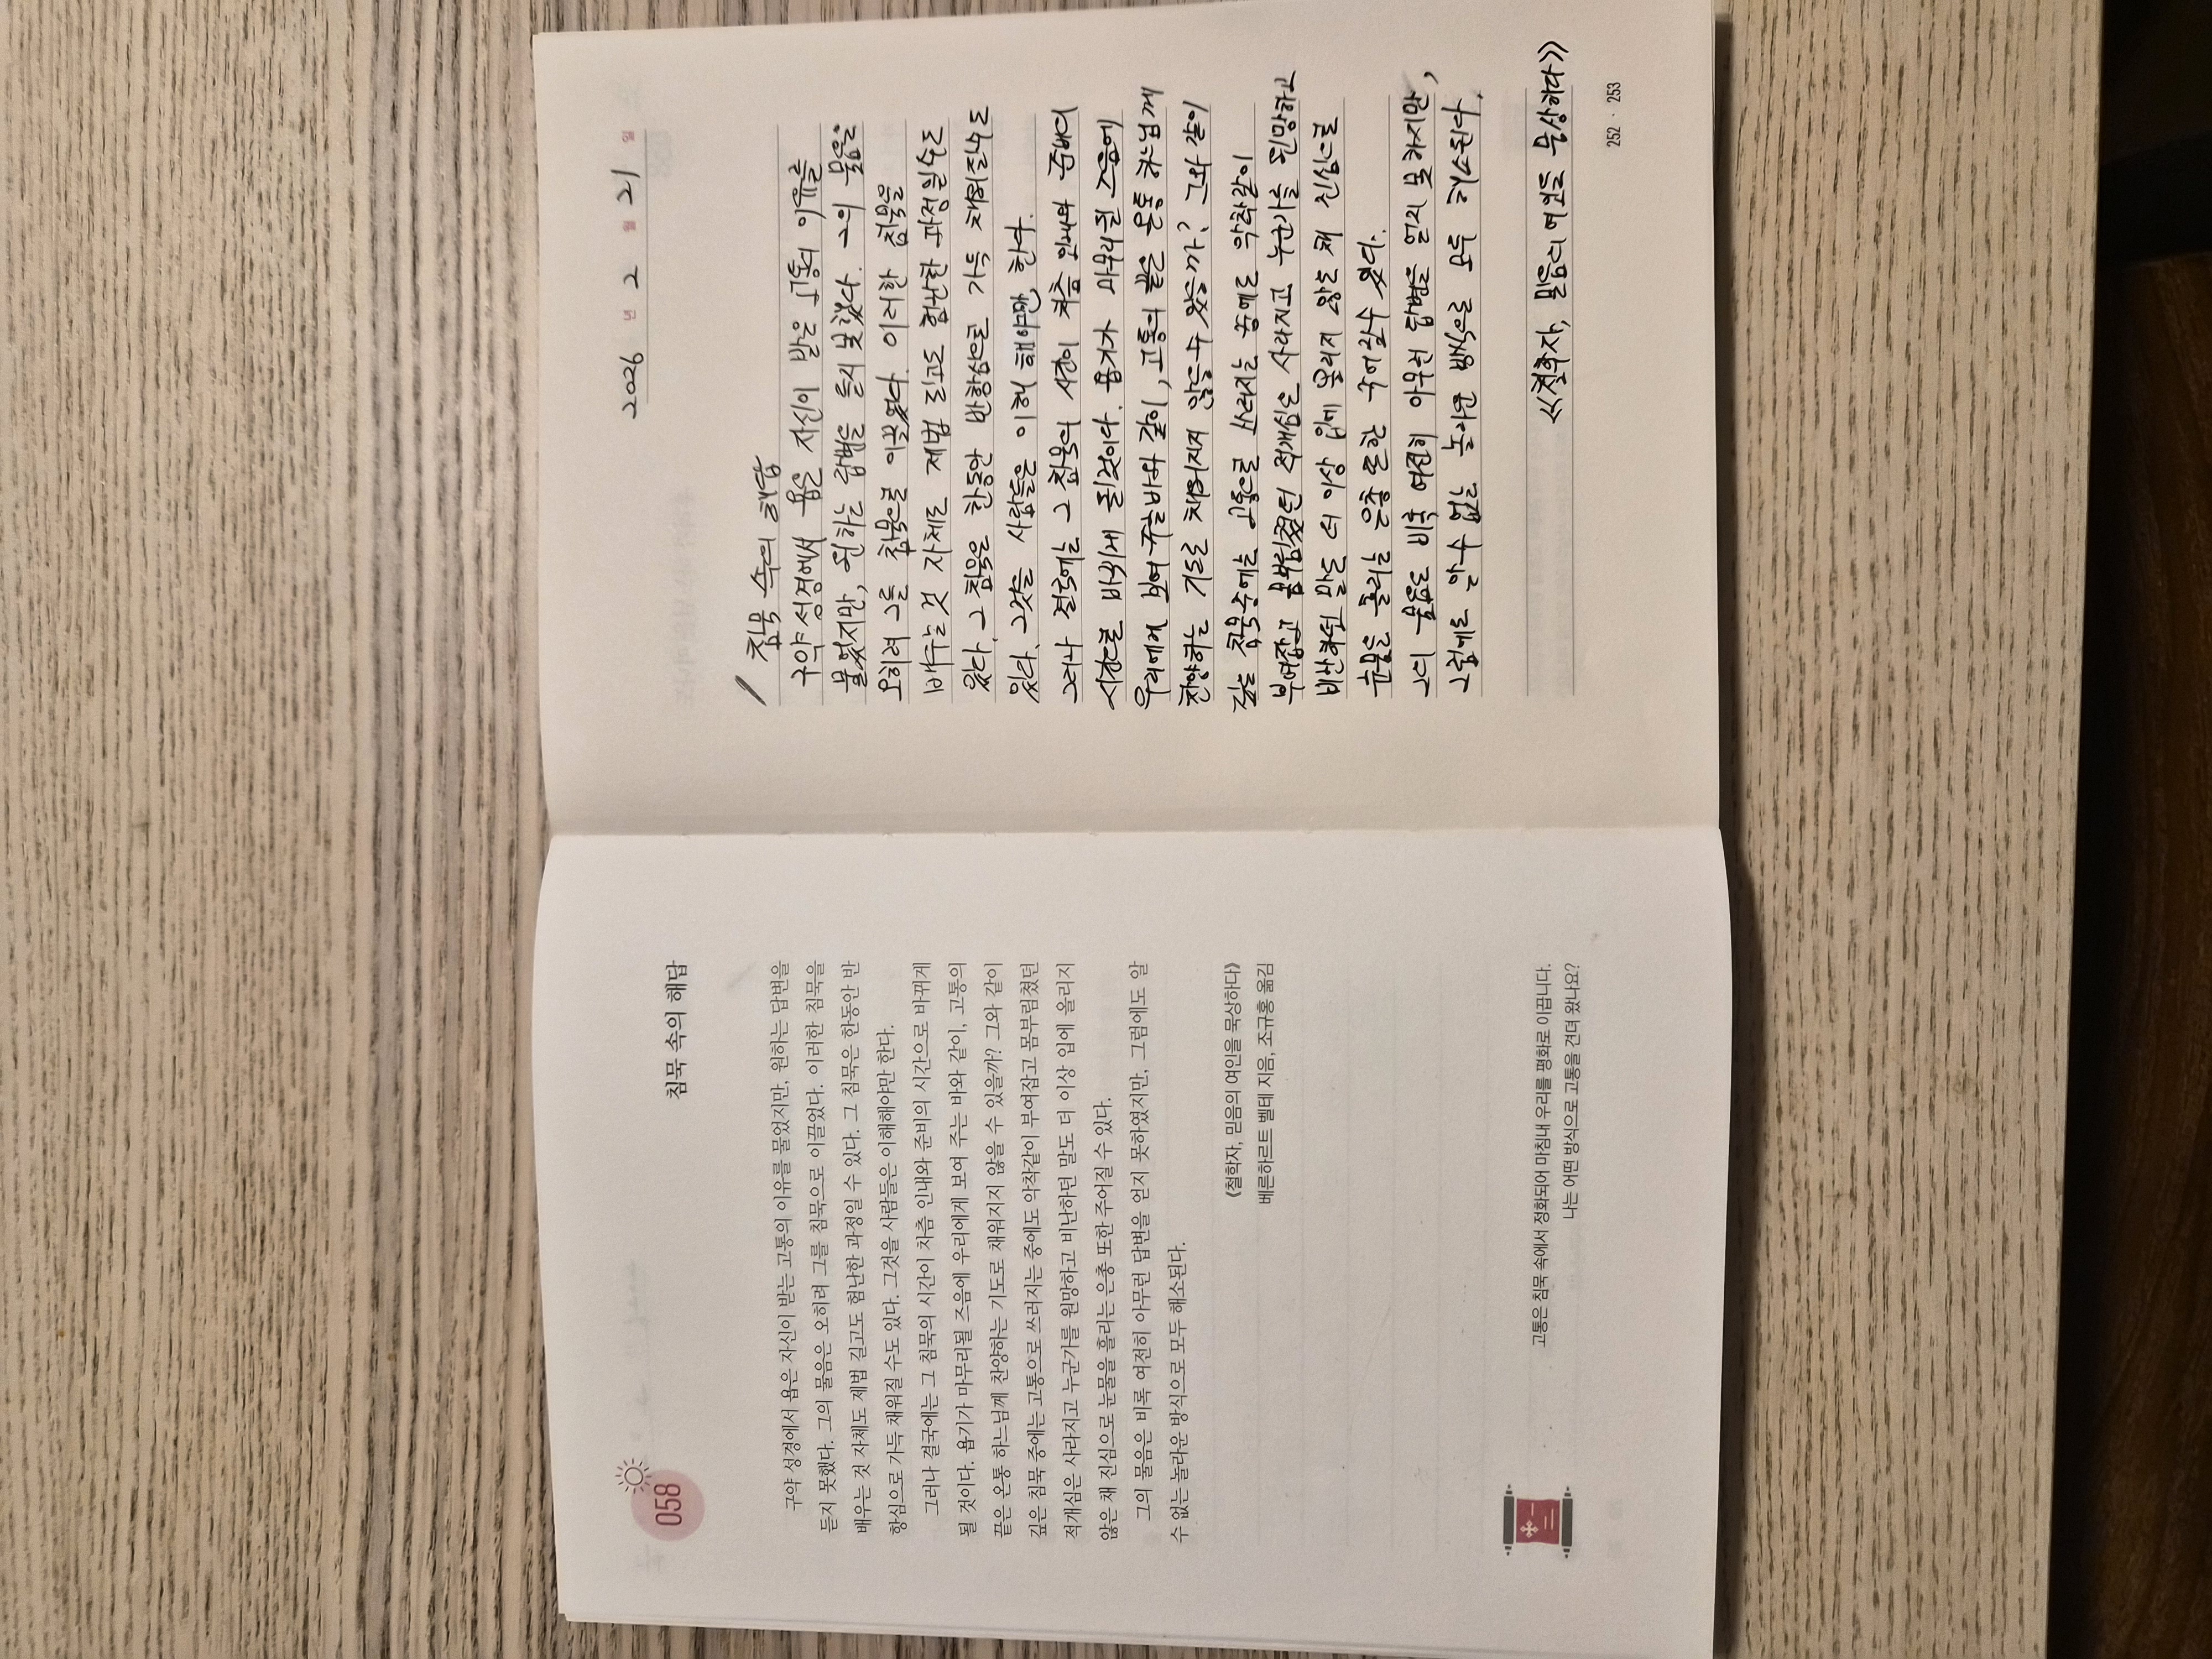 058
침묵 속의 해답
구약 성경에서 욥은 자신이 받는 고통의 이유를 물었지만, 원하는 답변을
듣지 못했다. 그의 물음은 오히려 그를 침묵으로 이끌었다. 이러한 침묵을
배우는 것 자체도 제법 길고도 험난한 과정일 수 있다. 그 침묵은 한동안 반
항심으로 가득 채워질 수도 있다. 그것을 사람들은 이해해야만 한다.
그러나 결국에는 그 침묵의 시간이 차츰 인내와 준비의 시간으로 바뀌게
될 것이다. 욥기가 마무리될 즈음에 우리에게 보여 주는 바와 같이, 고통의
끝은 온통 하느님께 찬양하는 기도로 채워지지 않을 수 있을까? 그와 같이
깊은 침묵 중에는 고통으로 쓰러지는 중에도 악착같이 부여잡고 몸부림쳤던
적개심은 사라지고 누군가를 원망하고 비난하던 말도 더 이상 입에 올리지
않은 채 진심으로 눈물을 흘리는 은총 또한 주어질 수 있다.
그의 물음은 비록 여전히 아무런 답변을 얻지 못하였지만, 그럼에도 알
수 없는 놀라운 방식으로 모두 해소된다.
《철학자, 믿음의 여인을 묵상하다》
베른하르트 벨테 지음, 조규홍 옮김
고통은 침묵 속에서 정화되어 마침내 우리를 평화로 이끕니다.
나는 어떤 방식으로 고통을 견뎌 왔나요?
2026 년 2 월 21 일
침묵 속의 해답
구약 성경에서 욥은 자신이 받은 고통의 이유를
물었지만, 원하는 답변을 듣지 못했다. 그의 물음은
오히려 그를 침묵으로 이끌었다. 이러한 침묵을
배우는 것 자체도 제법 길고도 험난한 과정일수도
있다. 그 침묵은 한동안 반항심으로 가득 채워질수도
있다. 그것을 사람들은 이해 해야만 한다.
그러나 결국에는 그 침묵의 시간이 차츰 인내와 준비의
시간으로 바뀌게 될것이다. 욥기가 마무리될 즈음에
우리에게 보여 주는바와 같이, 고통의 끝은 온통 하느님께
찬양하는 기도로 채워지지 않을수 있을까? 그와 같이
깊은 침묵중에는 고통으로 쓰러지는 중에도 악착같이
부여잡고 몸부림쳤던 적개심은 사라지고 누군가를 원망하고
비난하던 말도 더 이상 입에 올리지 않은 채 진심으로
눈물을 흘리는 은총 또한 주어질수 있다.
그의 물음은 비록 여전히 아무런 답변을 얻지 못하지만,
그럼에도 알수 없는 놀라운 방식으로 모두 해소된다.
《철학자, 믿음의 여인을 묵상하다》
252 · 253